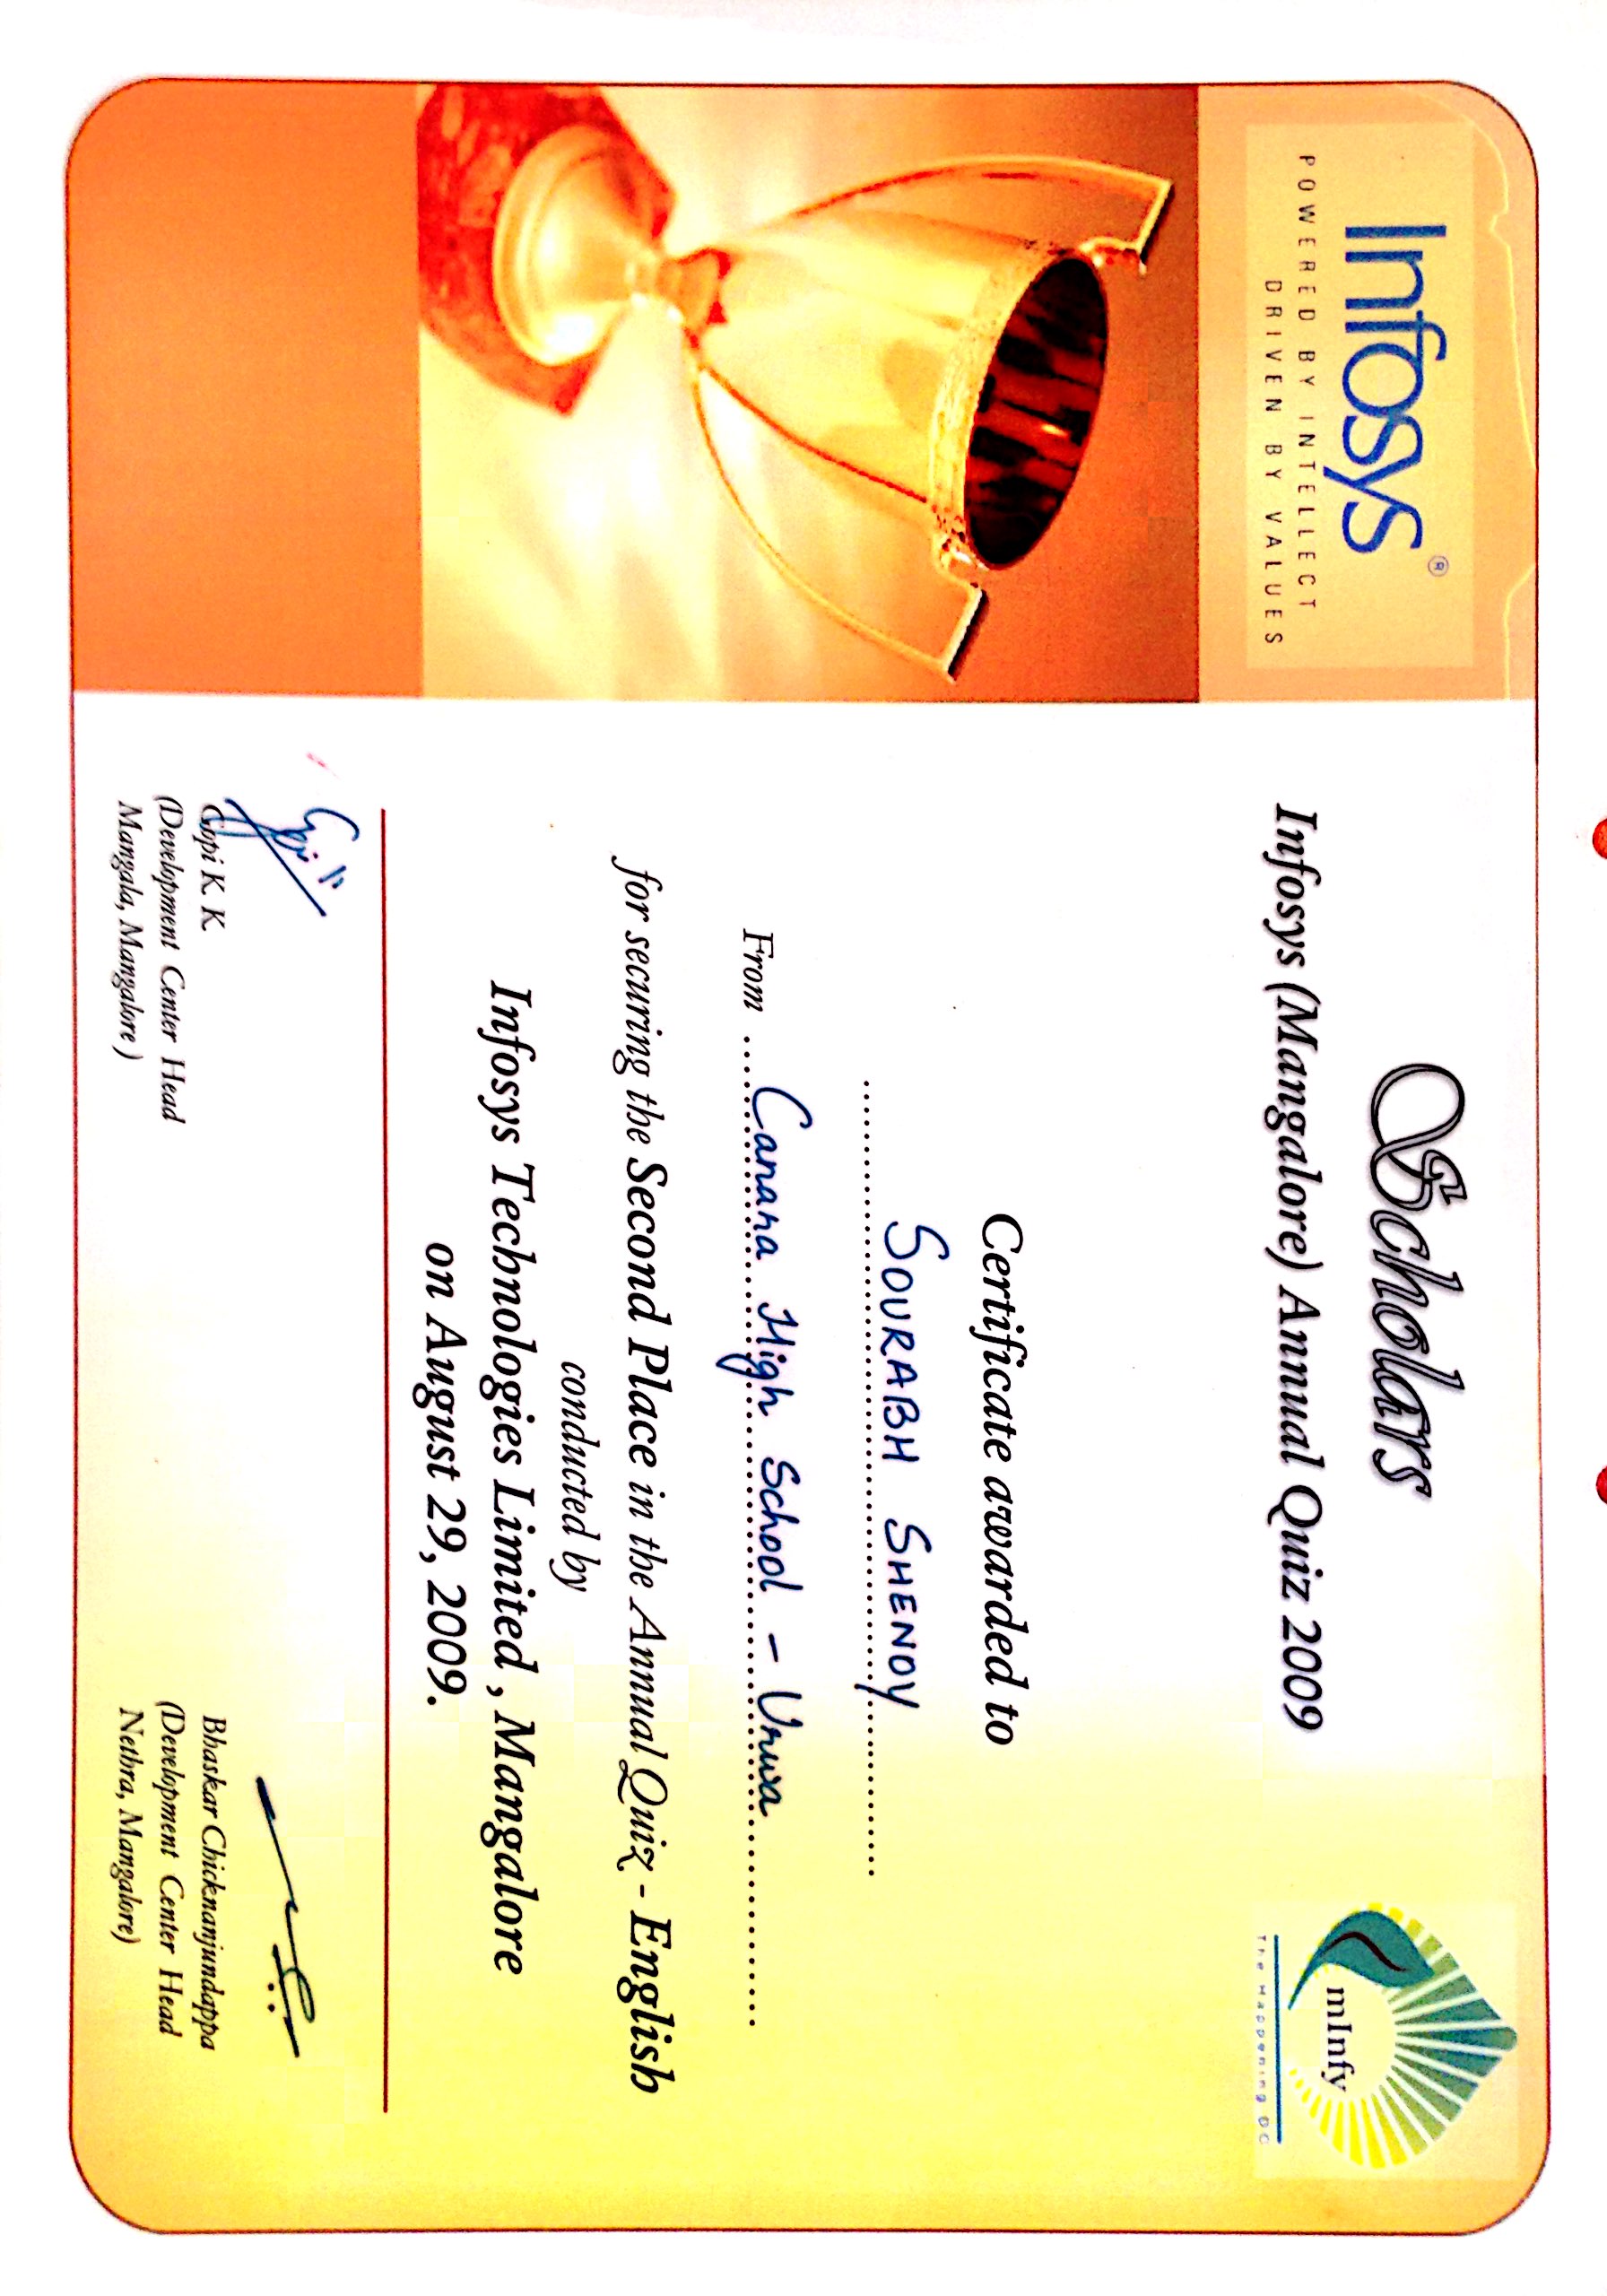 Infosys®
POWERED BY INTELLECT
DRIVEN BY VALUES
Scholars
Infosys (Mangalore) Annual Quiz 2009
mInfy
The Happening DC
Certificate awarded to
SOURABH SHENOY
From Canara High School - Urwa
for securing the Second Place in the Annual Quiz - English
conducted by
Infosys Technologies Limited , Mangalore
on August 29, 2009.
Gopi K K
(Development Center Head
Mangala, Mangalore )
Bhaskar Chicknanjundappa
(Development Center Head
Nethra, Mangalore)